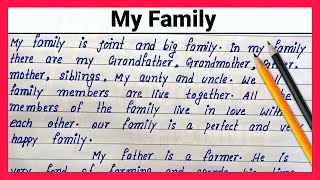 My Family
My family is joint and big family. In my family
there are my Grandfather, Grandmother, father,
mother, siblings, My aunty and uncle. we all
family members are live together. All the
members of the family live in love with
each other. our family is a perfect and very
happy family.
My father is a farmer. He is
very fond of farming and spends his